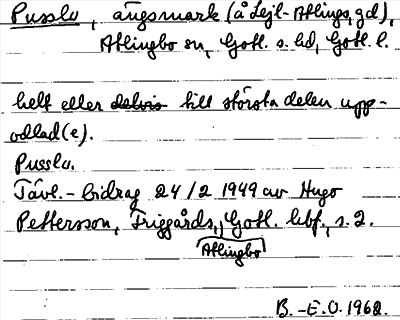 Pusslu, ängsmark (å Lejl-Atlings, gd),
Atlingbo sn, Gotl. s. hd, Gotl. l.
helt eller delvis till största delen upp-
odlad(e).
Pusslu.
Tävl.-bidrag 24/2 1949 av Hugo
Pettersson, Triggårds, Gotl. hbf., s. 2.
Atlingbo
B.-E.O. 1968.